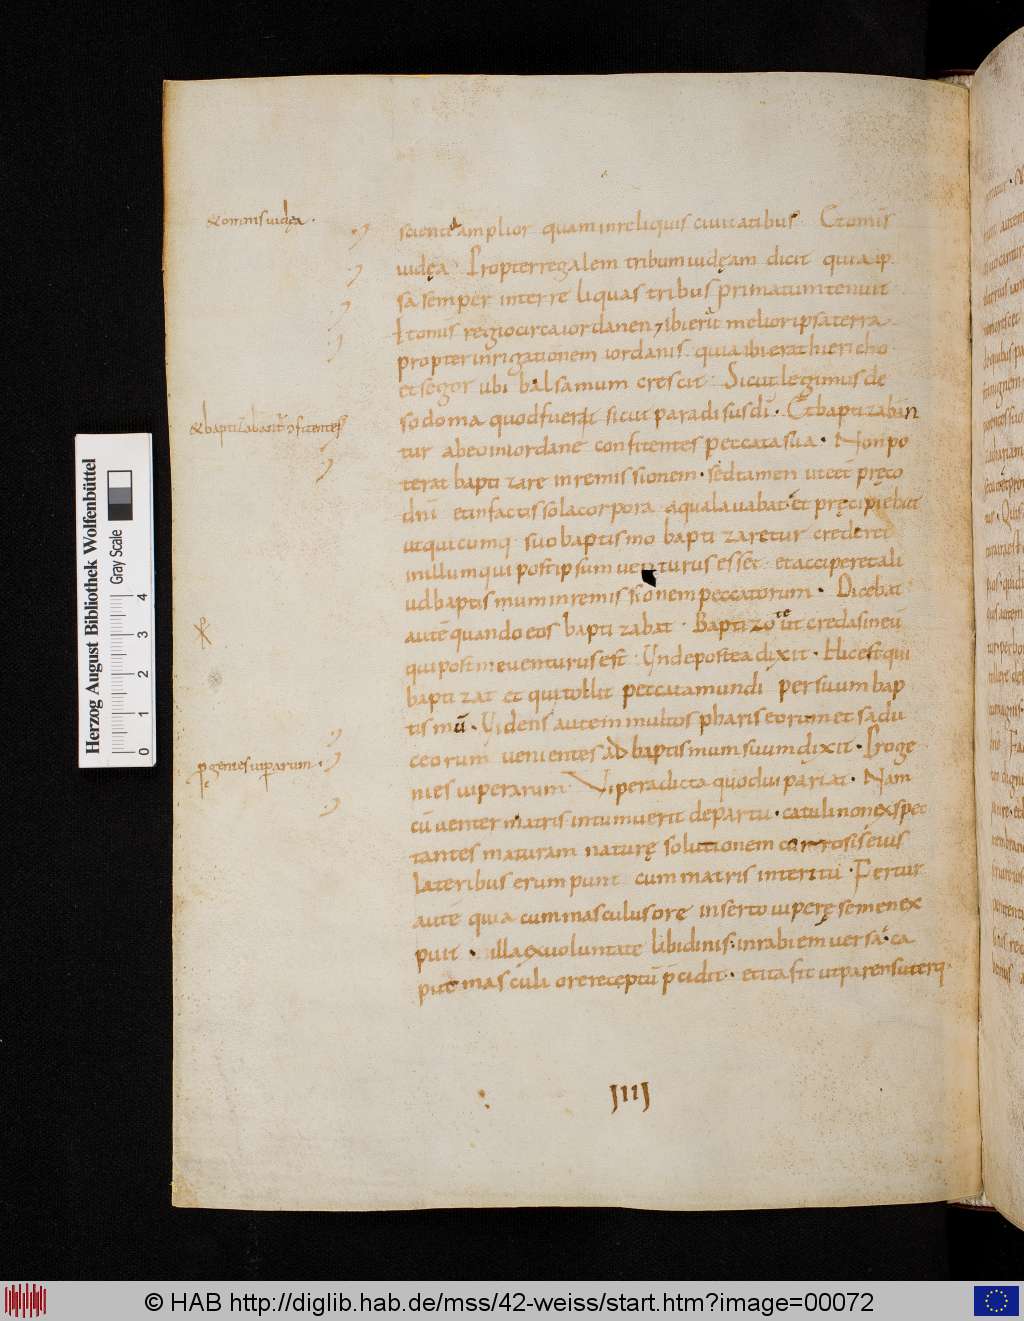 &omnis iudęa.
scientia amplior quam in reliquis ciuitatibus. Et omīs
iudęa. Propter regalem tribum iudęam dicit quia ip
sa semper inter reliquas tribus primatum tenuit
Et omis regio circa iordanen, ibi erat melior ipsa terra
propter inrigationem iordanis. quia ibi erat hiericho
et segor ubi balsamum crescit. Sicut legimus de
sodoma quod fuerit sicut paradisus dī. Et baptizaban
&baptizabant̄ ɔfitentes
tur ab eo in iordane confitentes peccata sua. Non po
terat baptizare in remissionem. sed tamen ut eēt pręco
dnī et in factis sola corpora aqua lauabat. et pręcipiebat
ut quicumq suo baptismo baptizaretur crederet
in illum qui post ipsum uenturus esset. et acciperet ali
ud baptismum in remissionem peccatorum. Dicebat
autē quando eos baptizabat. Baptizo te ut credas in eū
qui post me uenturus est. Unde postea dixit. Hic est qui
baptizat et qui tollit peccata mundi per suum bap
tismū. Uidens autem multos phariseorum et sadu
ceorum uenientes ad baptismum suum dixit. Proge
ꝓgenies uiperarum.
nies uiperarum. Vipera dicta quod ui pariat. Nam
cū uenter matris intumuerit de partu. catuli non exspec
tantes maturam naturę solutionem corrosis eius
lateribus erumpunt cum matris interitū. Fertur
autē quia cum masculus ore inserto uiperę semen ex
puit. illa ex uoluntate libidinis in rabiem uersa. ca
put masculi ore receptū p̄cidit. et ita fit ut parens uterq
IIII
Herzog August Bibliothek Wolfenbüttel
Gray Scale
0 1 2 3 4
© HAB http://diglib.hab.de/mss/42-weiss/start.htm?image=00072